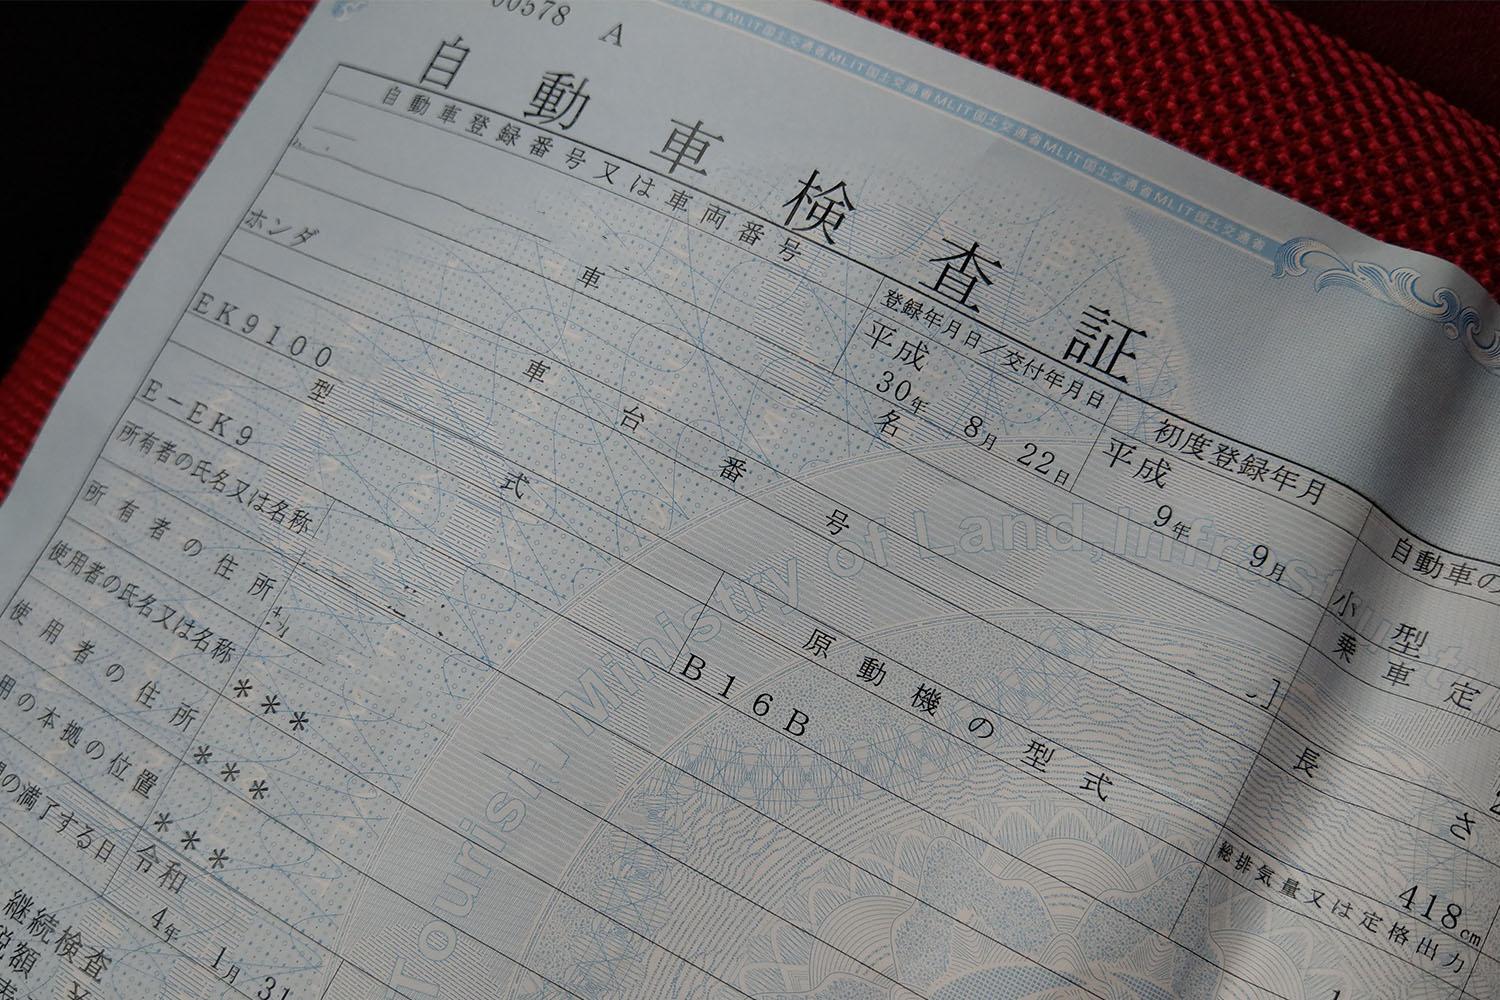 00578 A
自動車検査証
自動車登録番号又は車両番号
登録年月日/交付年月日
初度登録年月
自動車の
平成 30年 8月 22日
平成 9年 9月
小型
車名
乗車定
ホンダ
車台番号
EK9100
長さ
418cm
型式
原動機の型式
E-EK9
B16B
総排気量又は定格出力
所有者の氏名又は名称
所有者の住所
使用者の氏名又は名称
***
使用者の住所
***
用の本拠の位置
***
間の満了する日
令和 4年 1月 31
継続検査
税額
Ministry of Land,Infrast
Tourism
MLIT国土交通省MLIT国土交通省MLIT国土交通省MLIT国土交通省MLIT国土交通省MLIT国土交通省